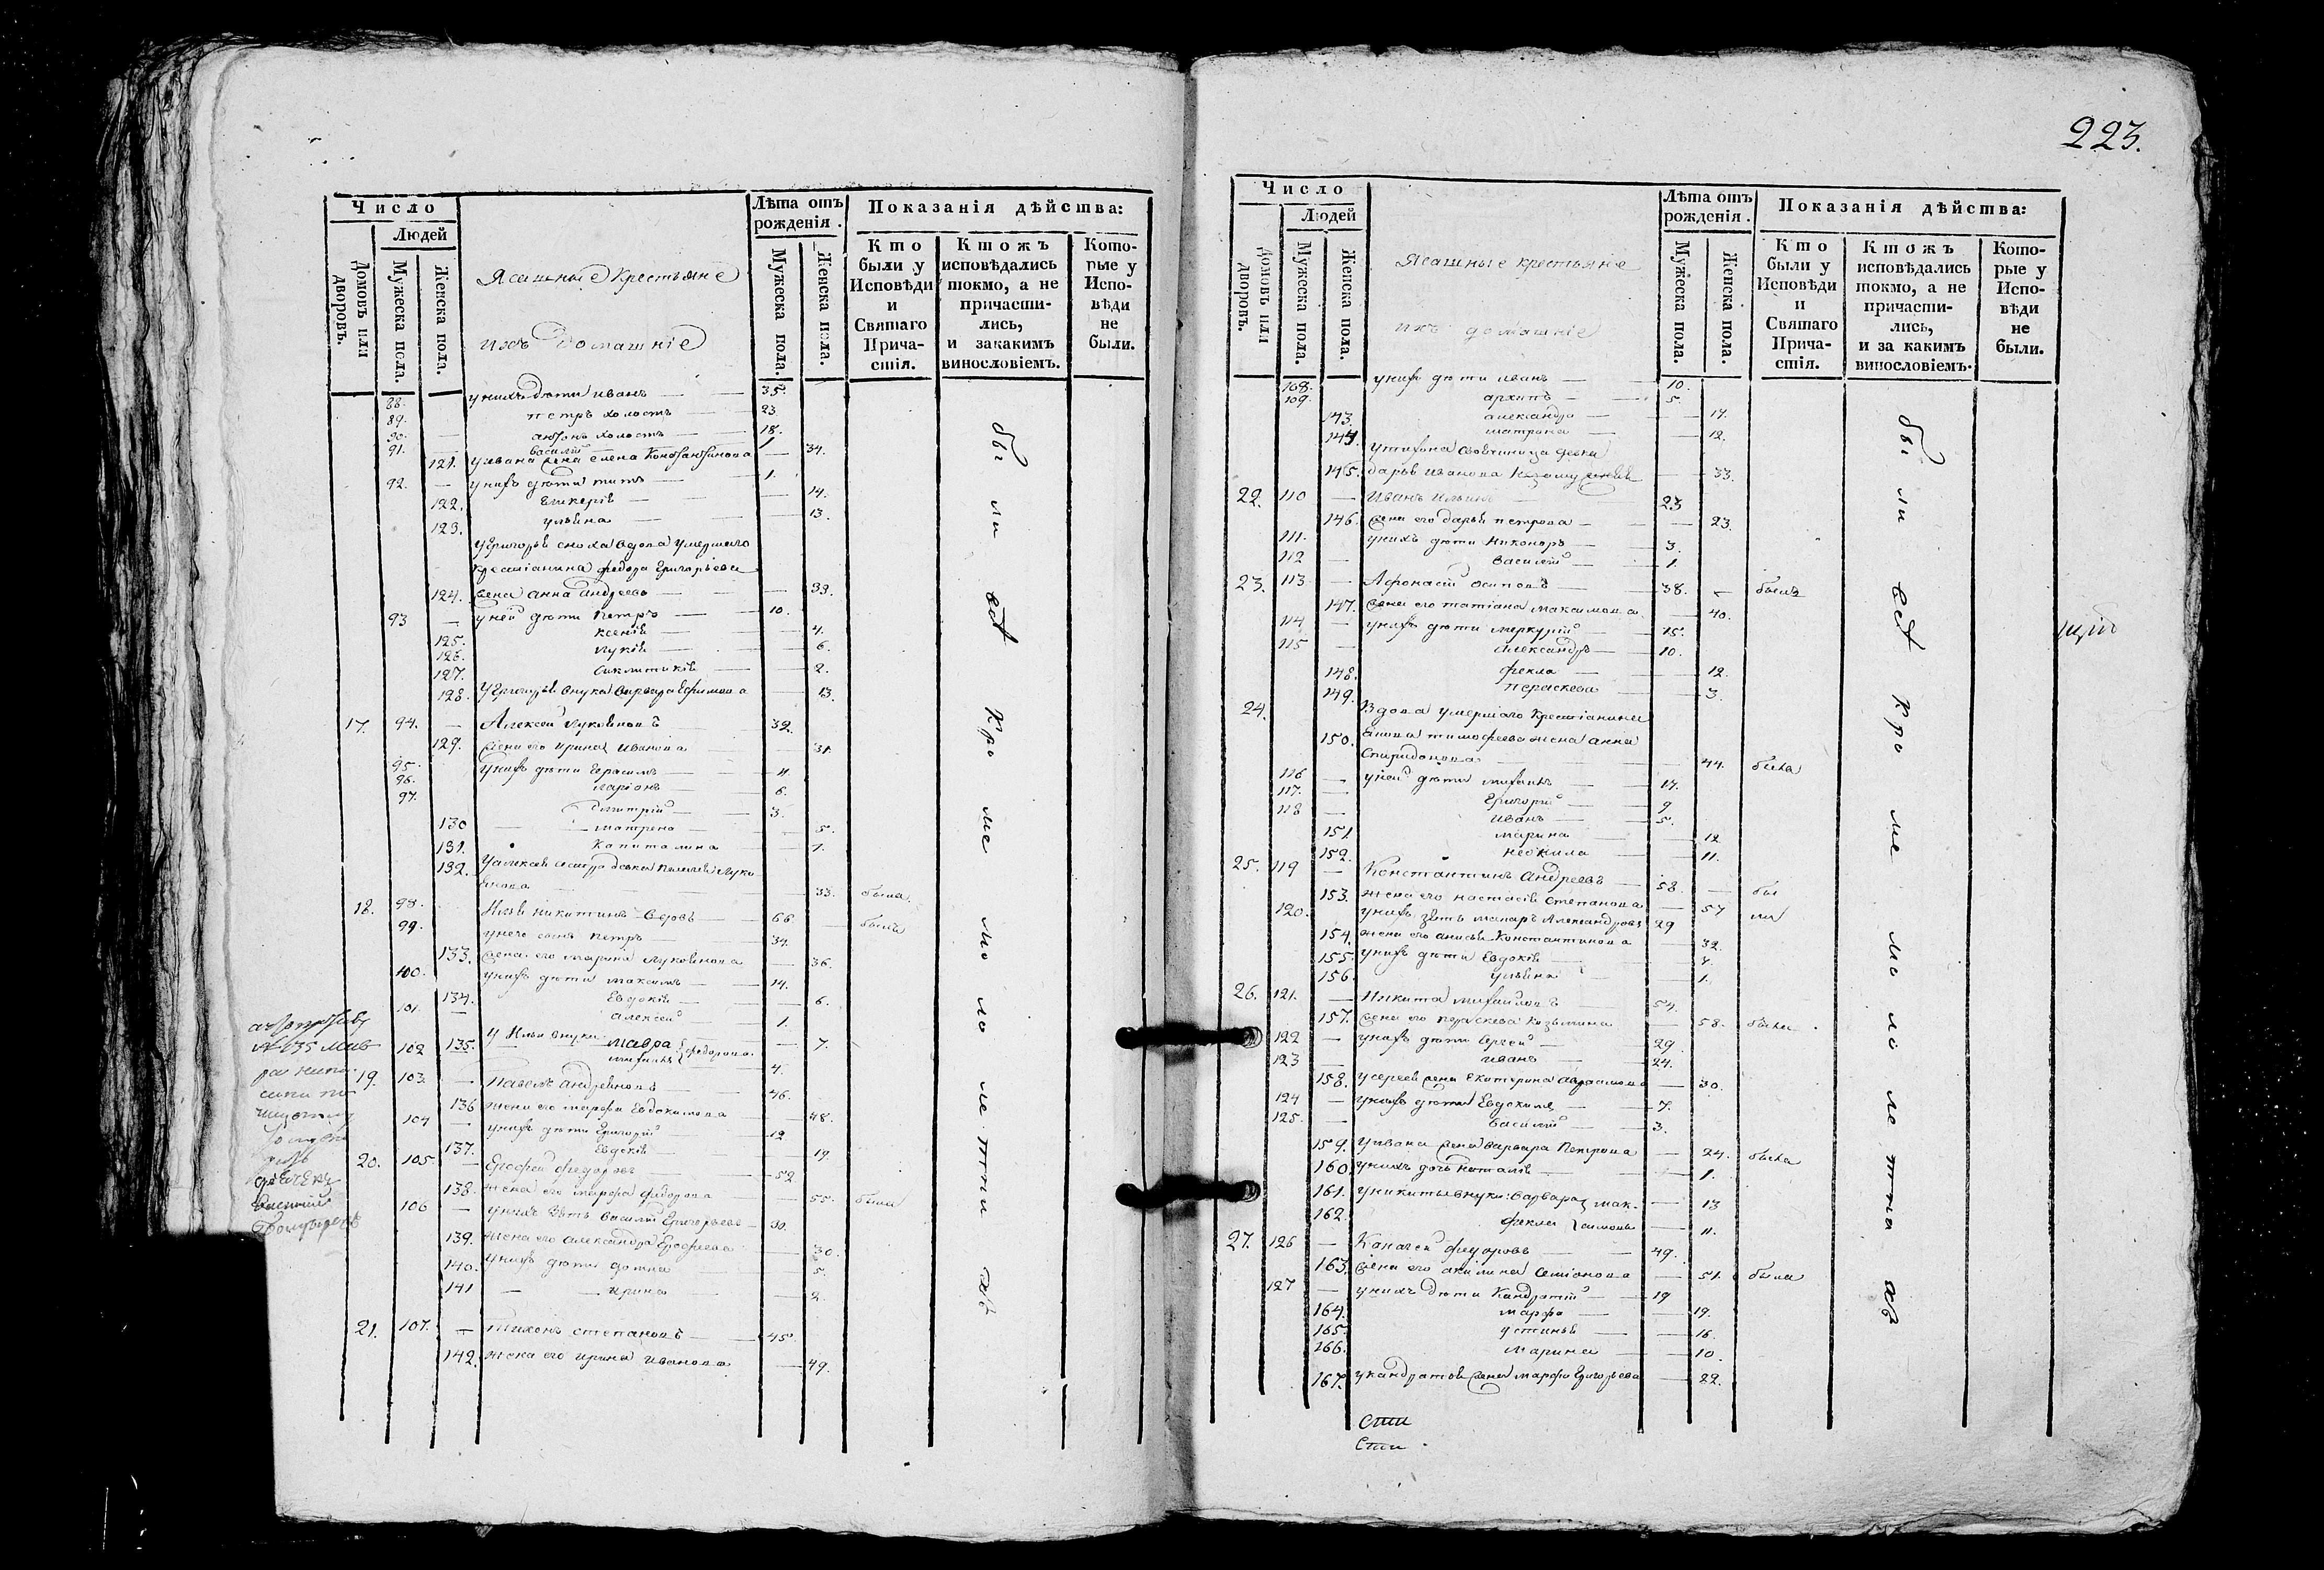 Число
Людей
Домовъ или дворовъ.
Мужеска пола.
Женска пола.
Ясашные Крестьяне
ихъ домашніе
Лѣта отъ рожденія.
Мужеска пола.
Женска пола.
Показанія дѣйства:
Кто были у Исповѣди и Святаго Причастія.
Ктожъ исповѣдались токмо, а не причастились, и закакимъ винословіемъ.
Которые у Исповѣди не были.
88. у нихъ дѣти иванъ — 35.
89. петръ холостъ — 23
90. — антонъ холостъ — 18.
91. — василій 1
121. у ивана жена елена Константинова — 34.
92. — у нихъ дѣти титъ — 1.
122. Гликерія — 14.
123. ульяна — 13.
у Григорья сноха вдова умершаго
крестіанина федора Григорьева
124. жена анна андреева — 33.
93 — у ней дѣти петръ — 10.
125. ксенія — 4.
126. лукія — 6.
127. — 2.
128. у Григорья внука варвара Ефимова — 13.
17. 94. — Алексей Лукоянов — 32.
129. жена его ирина иванова — 31.
95. у нихъ дѣти Герасимъ — 11.
96. ларіонъ — 6.
97. Дмитрій — 3.
130 — матрена — 5.
131. Капиталина — 1.
132. у алексея сестра девка Луко
янова — 33. была.
18. 98. Илья никитинъ — 66. былъ
99. у него сынъ петръ — 34.
133. жена его марина Лукоянова — 36.
100. у нихъ дѣти максимъ — 14.
134. Евдокія — 6.
101. — алексей — 1.
135. у Ильи внуки мавра федорова — 7.
102 4.
19. 103. — павелъ андреяновъ — 46.
136 жена его марфа Евдокимова — 48.
104 — у нихъ дѣти Григорій — 12
137. Евдокія — 19
20. 105. — Ерофей федоровъ — 52
138. жена его марфа федорова — 55. была
106 — у нихъ зять василій Григорьевъ — 30.
139. жена его александра Ерофеева — 30.
140. у нихъ дѣти домна — 5.
141 — ирина — 2.
21. 107. — тихонъ степановъ — 45.
142. жена его ирина иванова — 49.
бы ли всѣ кро ме мо ло ле тни хъ
223.
Число
Людей
Домовъ или дворовъ.
Мужеска пола.
Женска пола.
Ясашные крестьяне
ихъ домашніе
Лѣта отъ рожденія.
Мужеска пола.
Женска пола.
Показанія дѣйства:
Кто были у Исповѣди и Святаго Причастія.
Ктожъ исповѣдались токмо, а не причастились, и за какимъ винословіемъ.
Которые у Исповѣди не были.
108. у нихъ дѣти иванъ — 10.
109. архипъ — 5.
143. александра — 17.
144. матрона — 12.
у тихона своячиница девка
145. дарья иванова — 33.
22. 110 — Иванъ Ильинъ — 23
146. жена его дарья петрова — 23.
111. у нихъ дѣти Никоноръ — 3.
112 — василій — 1.
23. 113 — Афонасій осиповъ — 38. — былъ
147. жена его татіана максимова — 40.
114 — у нихъ дѣти меркурій — 15.
115 — александръ — 10.
148. фекла — 12.
149. параскева — 3.
24. вдова умершаго крестіанина
150. тимофеева жена анна
спиридонова — 44. была
116 — у ней дѣти михаилъ — 14.
117. — Григорій — 9
118 — иванъ — 5.
151. марина — 12
152. неонила — 11.
25. 119 — Константинъ андреевъ — 58. — бы
153. жена его настасія степанова — 57 ли
120. у нихъ зять макаръ александровъ 29
154. жена его анисья константинова — 32.
155. у нихъ дѣти Евдокія — 4.
156. ульяна — 1.
26. 121. — Никита михайловъ — 54.
157. жена его параскева козьмина — 58. была
122 — у нихъ дѣти сергей — 29.
123 — иванъ — 24.
158. у сергея жена екатерина — 30.
124 — у нихъ дѣти Евдокимъ — 7.
125. — василій — 3.
159. у ивана жена варвара петрова — 24. была
160. у нихъ дочь наталія — 1.
161. у никиты внуки: варвара мак- — 13
162. фекла симовы — 11.
27. 126 — федоровъ — 49.
163. жена его акилина семіонова — 51. была
127 — у нихъ дѣти кандратій — 19
164. марфа — 19.
165. устинья — 16.
166. марина — 10.
167. у кандратья жена марфа Григорьева — 22.
бы ли всѣ кро ме мо ло ле тни хъ